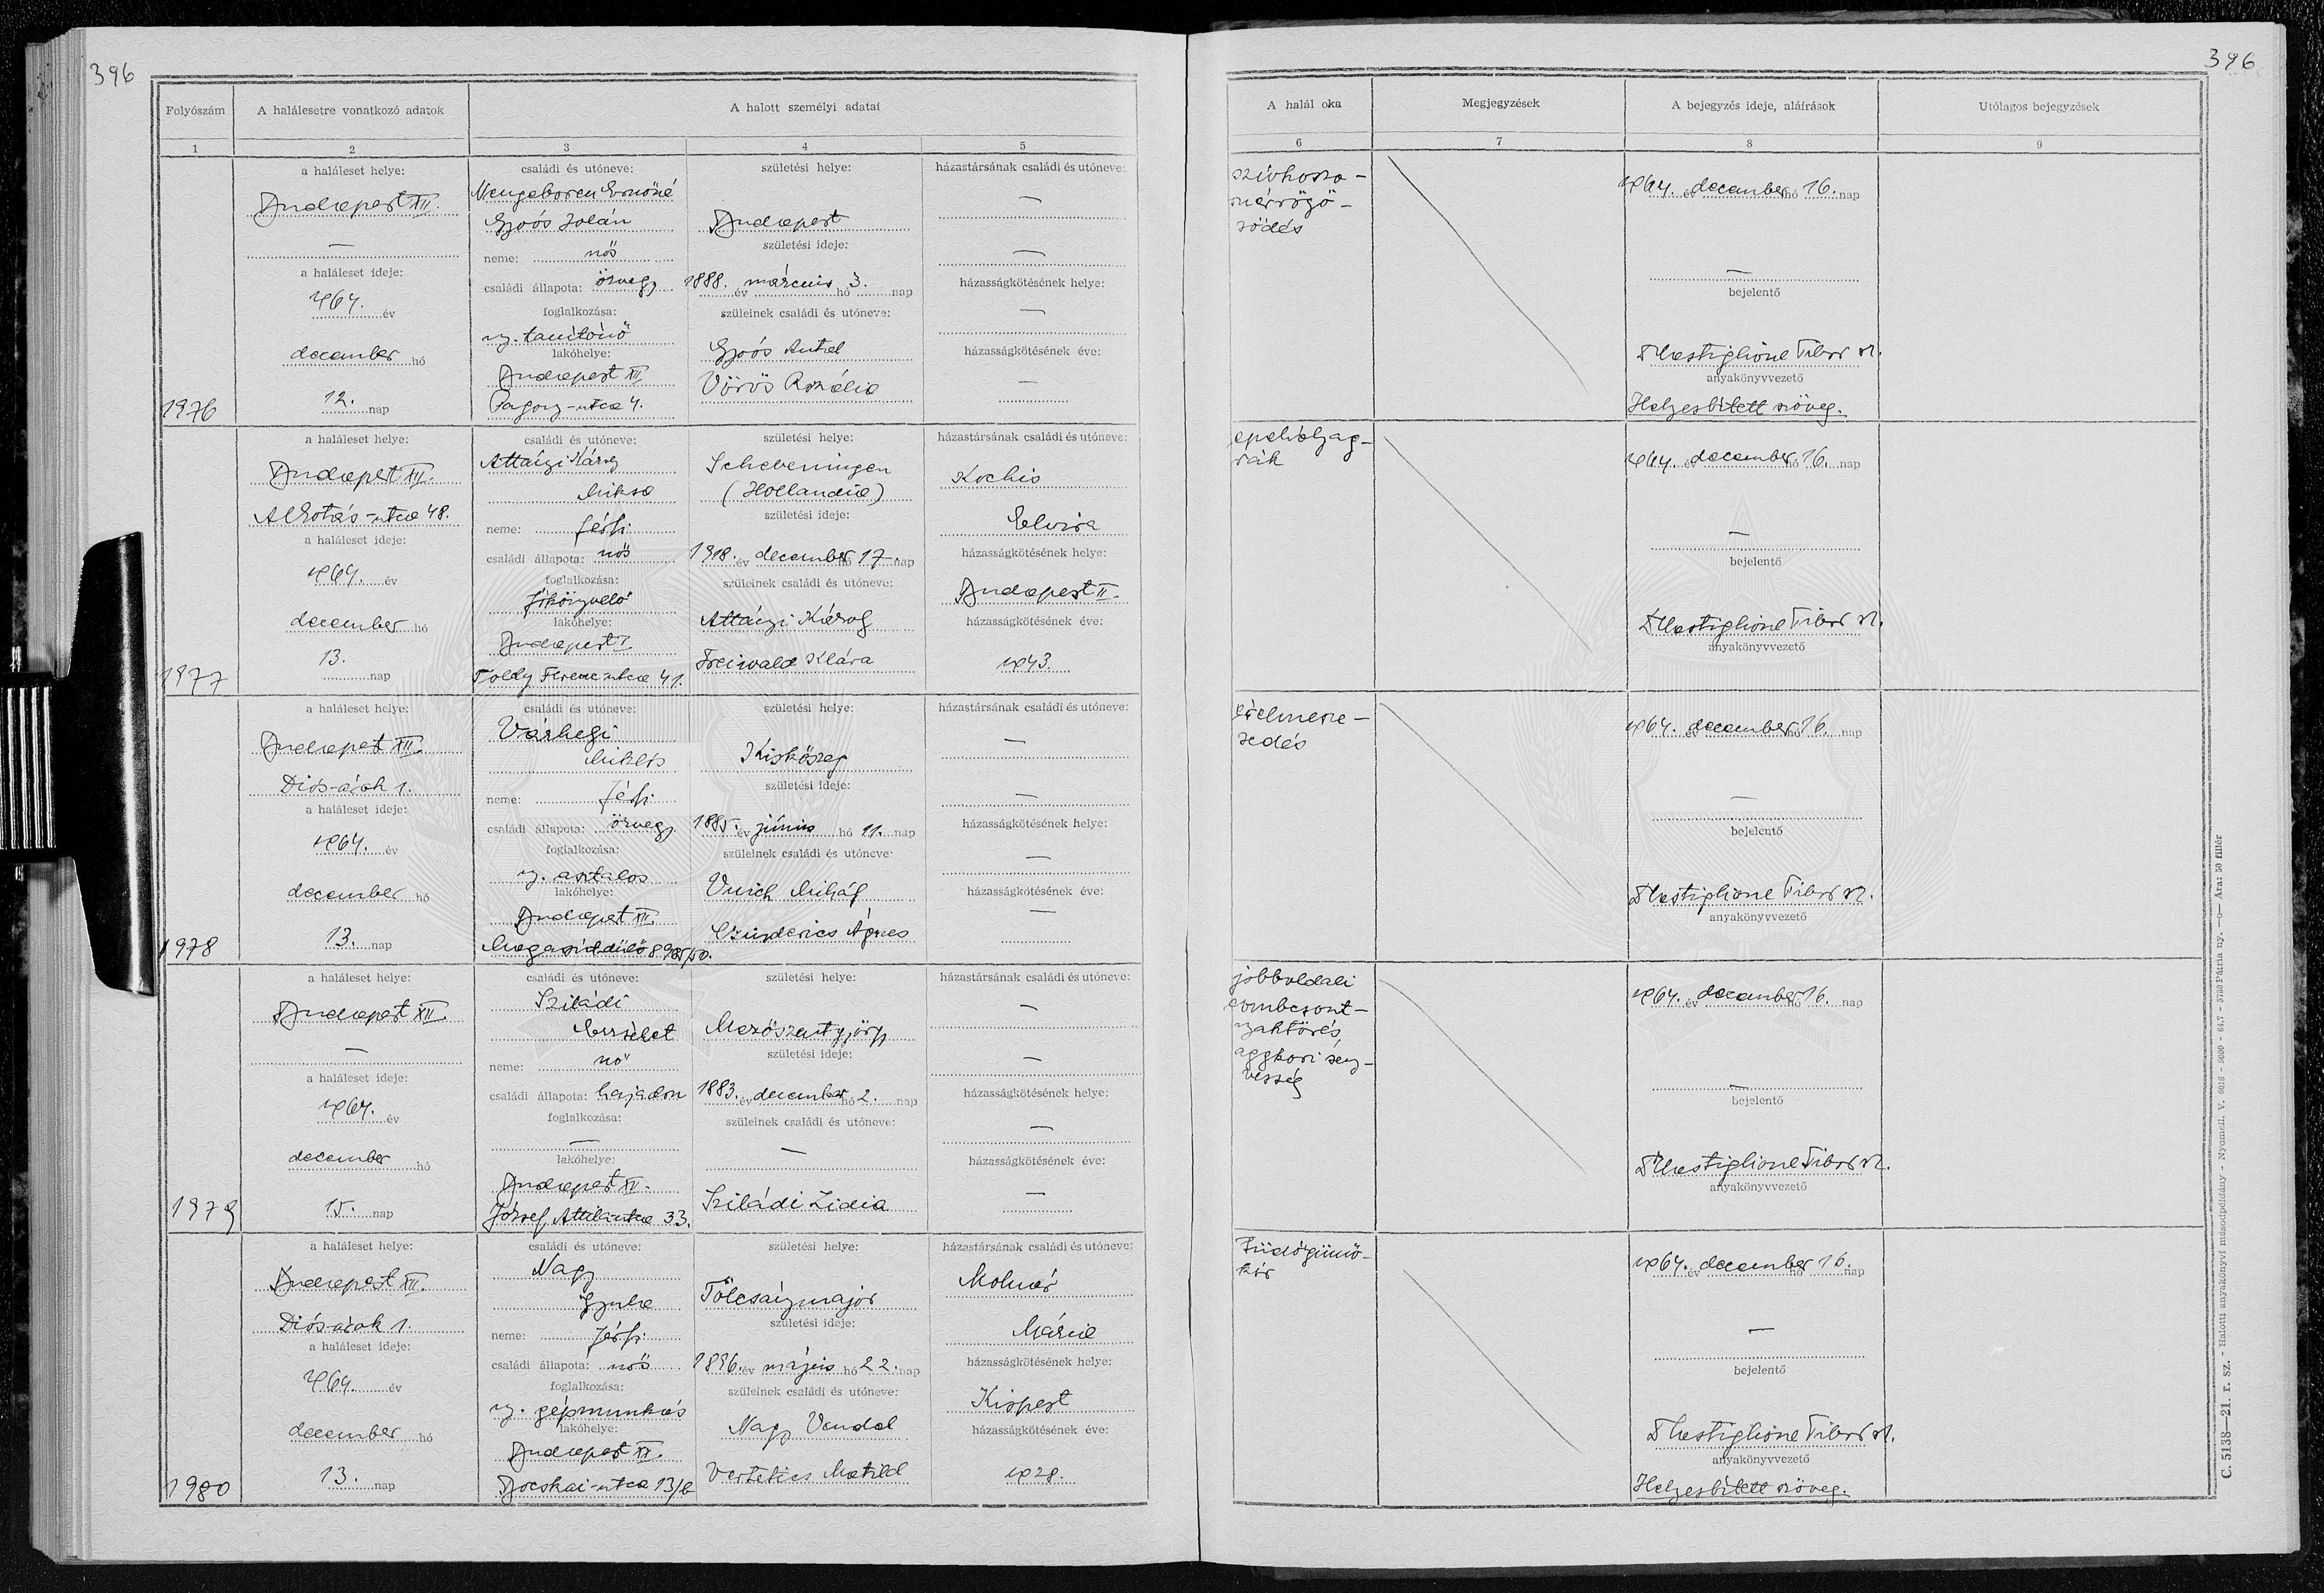 396
Folyószám
A halálesetre vonatkozó adatok
A halott személyi adatai
1
2
3
4
5
a haláleset helye:
Budapest XII.
—
a haláleset ideje:
1964. év
december hó
12. nap
1976
családi és utóneve:
Neugeboren Ernőné
Goós Jolán
neme: nő
családi állapota: özvegy
foglalkozása:
ny. tanítónő
lakóhelye:
Budapest XII.
Pagony-utca 4.
születési helye:
Budapest
születési ideje:
1888. év március hó 3. nap
szüleinek családi és utóneve:
Goós Antal
Vörös Rozália
házastársának családi és utóneve:
—
—
házasságkötésének helye:
—
házasságkötésének éve:
—
a haláleset helye:
Budapest XII.
Alkotás-utca 48.
a haláleset ideje:
1964. év
december hó
13. nap
1977
családi és utóneve:
Attányi Károly
Miksa
neme: férfi
családi állapota: nős
foglalkozása:
főkönyvelő
lakóhelye:
Budapest I.
Toldy Ferenc utca 41.
születési helye:
Scheveningen
(Hollandia)
születési ideje:
1918. év december hó 17. nap
szüleinek családi és utóneve:
Attányi Károly
Freiwald Klára
házastársának családi és utóneve:
Kochis
Elvira
házasságkötésének helye:
Budapest II.
házasságkötésének éve:
1943.
a haláleset helye:
Budapest XII.
Diós-árok 1.
a haláleset ideje:
1964. év
december hó
13. nap
1978
családi és utóneve:
Várhegyi
Miklós
neme: férfi
családi állapota: özvegy
foglalkozása:
ny. asztalos
lakóhelye:
Budapest XII.
születési helye:
Kiskőszeg
születési ideje:
1885. év június hó 11. nap
szüleinek családi és utóneve:
Vuich Mihály
Ágnes
házastársának családi és utóneve:
—
—
házasságkötésének helye:
—
házasságkötésének éve:
—
a haláleset helye:
Budapest XII.
—
a haláleset ideje:
1964. év
december hó
15. nap
1979
családi és utóneve:
Sziládi
Erzsébet
neme: nő
családi állapota: hajadon
foglalkozása:
—
lakóhelye:
Budapest XV.
József Attila utca 33.
születési helye:
Mezőszentgyörgy
születési ideje:
1883. év december hó 2. nap
szüleinek családi és utóneve:
—
Sziládi Lidia
házastársának családi és utóneve:
—
—
házasságkötésének helye:
—
házasságkötésének éve:
—
a haláleset helye:
Budapest XII.
Diós-árok 1.
a haláleset ideje:
1964. év
december hó
13. nap
1980
családi és utóneve:
Nagy
Gyula
neme: férfi
családi állapota: nős
foglalkozása:
ny. gépmunkás
lakóhelye:
Budapest XI.
Bocskai-utca 13/b
születési helye:
Tölcsánymajor
születési ideje:
1896. év május hó 22. nap
szüleinek családi és utóneve:
Nagy Vendel
Vertetics Matild
házastársának családi és utóneve:
Molnár
Mária
házasságkötésének helye:
Kispest
házasságkötésének éve:
1928.
396
A halál oka
Megjegyzések
A bejegyzés ideje, aláírások
Utólagos bejegyzések
6
7
8
9
szívkoszo-
rúérrögö-
södés
1964. év december hó 16. nap
—
bejelentő
Castiglione Tibor
anyakönyvvezető
Helyesbített szöveg.
epehólyag-
rák
1964. év december hó 16. nap
—
bejelentő
Castiglione Tibor
anyakönyvvezető
érelmesze-
sedés
1964. év december hó 16. nap
—
bejelentő
Castiglione Tibor
anyakönyvvezető
jobboldali
combcsont-
nyaktörés,
aggkori
1964. év december hó 16. nap
—
bejelentő
Castiglione Tibor
anyakönyvvezető
Tüdőgümő-
kór
1964. év december hó 16. nap
—
bejelentő
Castiglione Tibor
anyakönyvvezető
Helyesbített szöveg.
C. 5138—21. r. sz. - Halotti anyakönyvi másodpéldány - Nyomell. V. 6016 - 9000 - 64,7 - 5722 Pátria ny. —o— Ára: 50 fillér